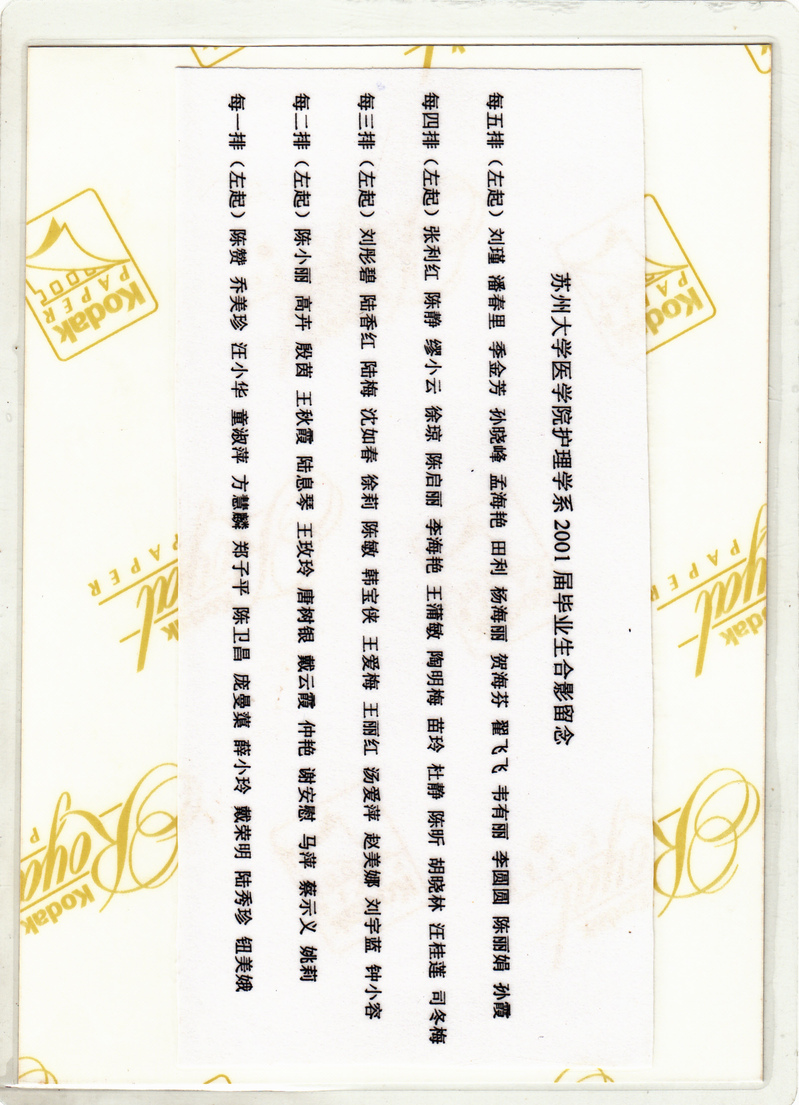 苏州大学医学院护理学系2001届毕业生合影留念
每五排（左起）刘瑾 潘春里 季金芳 孙晓峰 孟海艳 田利 杨海丽 贺海芬 翟飞飞 韦有丽 李圆圆 陈丽娟 孙霞
每四排（左起）张利红 陈静 缪小云 徐琼 陈启丽 李海艳 王蒲敏 陶明梅 苗玲 杜静 陈昕 胡晓林 汪桂莲 司冬梅
每三排（左起）刘彤碧 陆香红 陆梅 沈如春 徐莉 陈敏 韩宝侠 王爱梅 王丽红 汤爱萍 赵美娜 刘宇蓝 钟小容
每二排（左起）陈小丽 高卉 殷茵 王秋霞 陆息琴 王玫玲 唐树银 戴云霞 仲艳 谢安慰 马萍 蔡示义 姚莉
每一排（左起）陈赞 乔美珍 汪小华 童淑萍 方慧麟 郑子平 陈卫昌 庞曼蕖 薛小玲 戴荣明 陆秀珍 钮美娥
Kodak
PAPER
Kodak
PAPER
Kodak
Royal
PAPER
Kodak
Royal
PAPER
Kodak
Royal
P
Royal